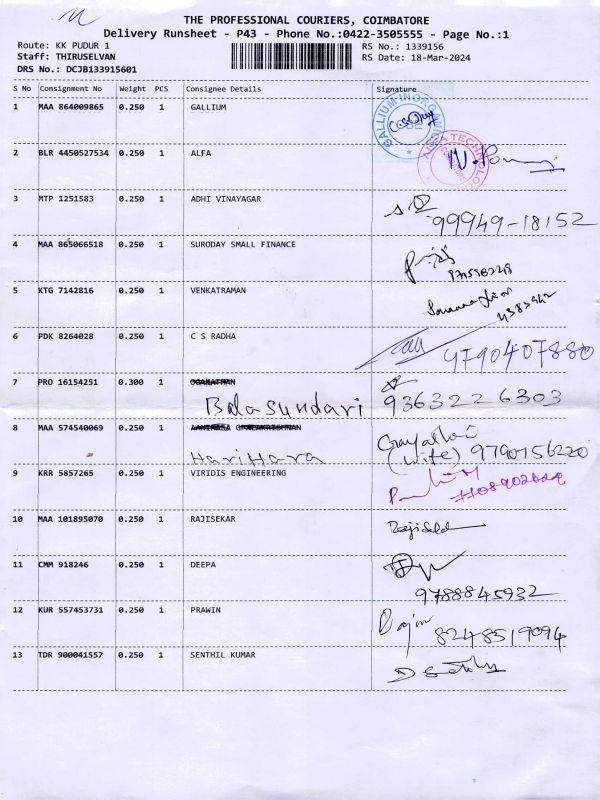 THE PROFESSIONAL COURIERS, COIMBATORE
Delivery Runsheet - P43 - Phone No.:0422-3505555 - Page No.:1
Route: KK PUDUR 1 RS No.: 1339156
Staff: THIRUSELVAN RS Date: 18-Mar-2024
DRS No.: DCJB133915601
S No Consignment No Weight PCS Consignee Details Signature
1 MAA 864009865 0.250 1 GALLIUM
GALLIUM INORGANICS
2 BLR 4450527534 0.250 1 ALFA
3 MTP 1251583 0.250 1 ADHI VINAYAGAR
99949-18152
4 MAA 865066518 0.250 1 SURODAY SMALL FINANCE
5 KTG 7142816 0.250 1 VENKATRAMAN
6 PDK 8264028 0.250 1 C S RADHA
9790407880
7 PRO 16154251 0.300 1
Balasundari 9363226303
8 MAA 574540069 0.250 1
HariHara (wife) 9790156220
9 KRR 5857265 0.250 1 VIRIDIS ENGINEERING
10 MAA 101895070 0.250 1 RAJISEKAR
11 CMM 918246 0.250 1 DEEPA
9788845932
12 KUR 557453731 0.250 1 PRAWIN
8248519094
13 TDR 900041557 0.250 1 SENTHIL KUMAR